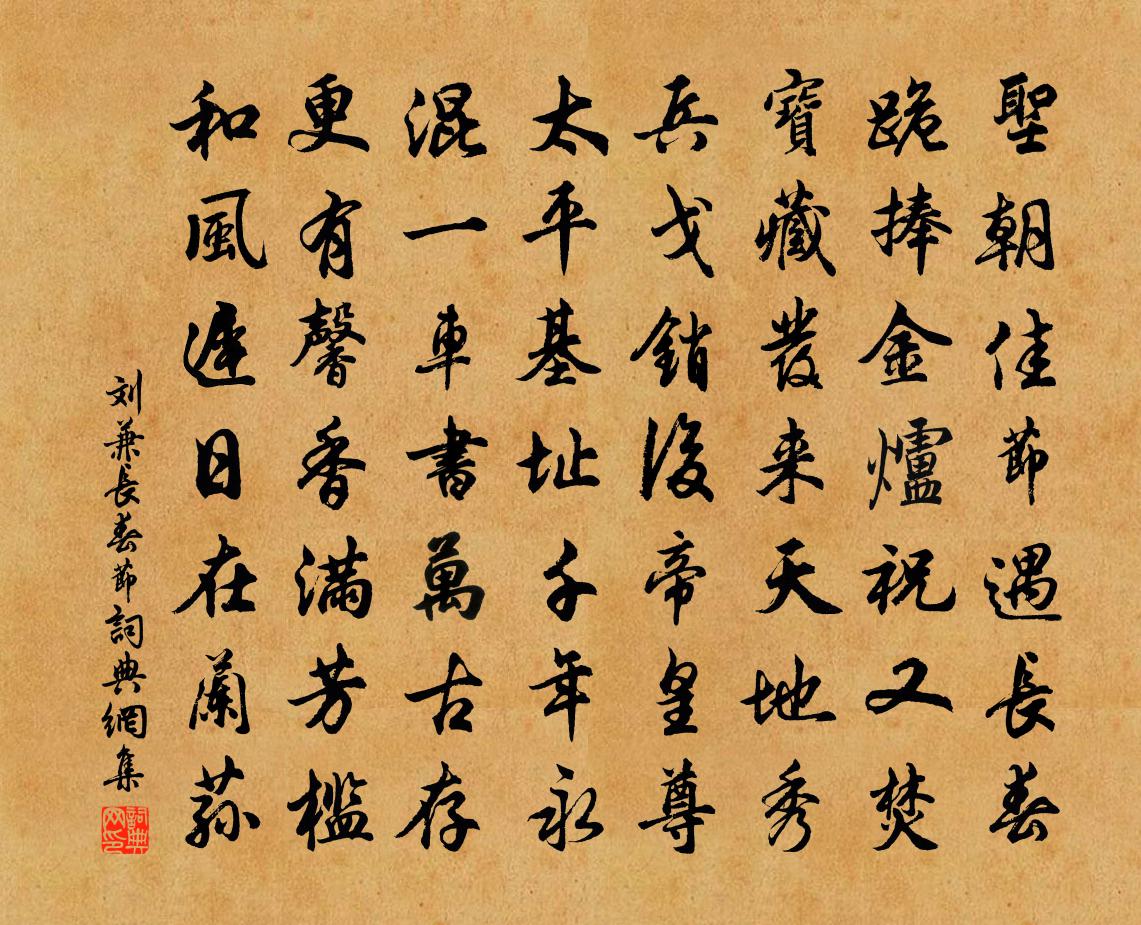 聖朝佳節遇長春
跪捧金爐祝又焚
寶藏發来天地秀
兵戈銷後帝皇尊
太平基址千年永
混一車書萬古存
更有馨香滿芳檻
和風遲日在蘭蓀
刘兼長春節詞典網集
詞典网印